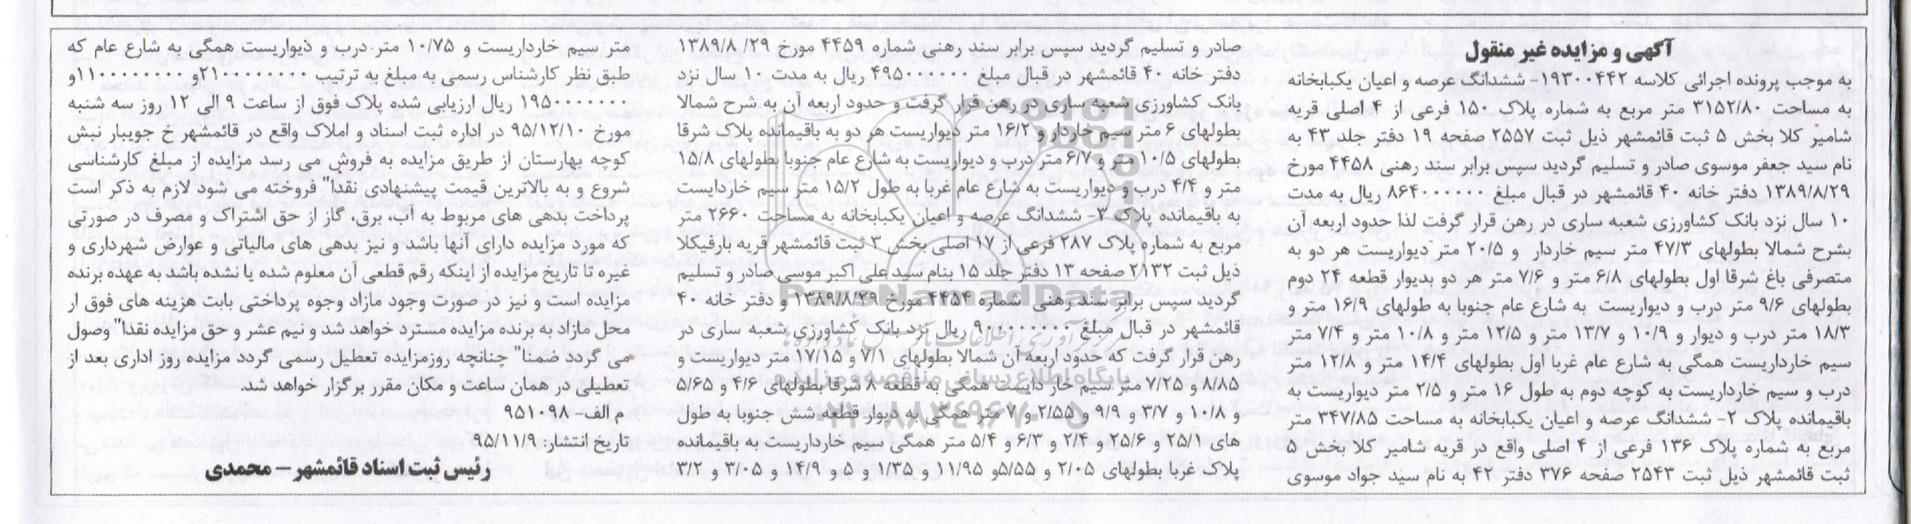 آگهی و مزایده غیر منقول
به موجب پرونده اجرائی کلاسه ۱۹۳۰۰۴۴۲- ششدانگ عرصه و اعیان یکبابخانه
به مساحت ۳۱۵۲/۸۰ متر مربع به شماره پلاک ۱۵۰ فرعی از ۴ اصلی قریه
شامیر کلا بخش ۵ ثبت قائمشهر ذیل ثبت ۲۵۵۷ صفحه ۱۹ دفتر جلد ۴۳ به
نام سید جعفر موسوی صادر و تسلیم گردید سپس برابر سند رهنی ۴۴۵۸ مورخ
۱۳۸۹/۸/۲۹ دفتر خانه ۴۰ قائمشهر در قبال مبلغ ۸۶۴۰۰۰۰۰۰ ریال به مدت
۱۰ سال نزد بانک کشاورزی شعبه ساری در رهن قرار گرفت لذا حدود اربعه آن
بشرح شمالا بطولهای ۴۷/۳ متر سیم خاردار و ۲۰/۵ متر دیواریست هر دو به
متصرفی باغ شرقا اول بطولهای ۶/۸ متر و ۷/۶ متر هر دو بدیوار قطعه ۲۴ دوم
بطولهای ۹/۶ متر درب و دیواریست به شارع عام جنوبا به طولهای ۱۶/۹ متر و
۱۸/۳ متر درب و دیوار و ۱۰/۹ و ۱۳/۷ متر و ۱۲/۵ متر و ۱۰/۸ متر و ۷/۴ متر
سیم خارداریست همگی به شارع عام غربا اول بطولهای ۱۴/۴ متر و ۱۲/۸ متر
درب و سیم خارداریست به کوچه دوم به طول ۱۶ متر و ۲/۵ متر دیواریست به
باقیمانده پلاک ۲- ششدانگ عرصه و اعیان یکبابخانه به مساحت ۳۴۷/۸۵ متر
مربع به شماره پلاک ۱۳۶ فرعی از ۴ اصلی واقع در قریه شامیر کلا بخش ۵
ثبت قائمشهر ذیل ثبت ۲۵۴۳ صفحه ۳۷۶ دفتر ۴۲ به نام سید جواد موسوی
صادر و تسلیم گردید سپس برابر سند رهنی شماره ۴۴۵۹ مورخ ۲۹/ ۱۳۸۹/۸
دفتر خانه ۴۰ قائمشهر در قبال مبلغ ۴۹۵۰۰۰۰۰۰ ریال به مدت ۱۰ سال نزد
بانک کشاورزی شعبه ساری در رهن قرار گرفت و حدود اربعه آن به شرح شمالا
بطولهای ۶ متر سیم خاردار و ۱۶/۲ متر دیواریست هر دو به باقیمانده پلاک شرقا
بطولهای ۱۰/۵ متر و ۶/۷ متر درب و دیواریست به شارع عام جنوبا بطولهای ۱۵/۸
متر و ۴/۴ درب و دیواریست به شارع عام غربا به طول ۱۵/۲ متر سیم خاردایست
به باقیمانده پلاک ۳- ششدانگ عرصه و اعیان یکبابخانه به مساحت ۲۶۶۰ متر
مربع به شماره پلاک ۲۸۷ فرعی از ۱۷ اصلی بخش ۳ ثبت قائمشهر قریه بارفیکلا
ذیل ثبت ۲۱۳۲ صفحه ۱۳ دفتر جلد ۱۵ بنام سید علی اکبر موسی صادر و تسلیم
گردید سپس برابر سند رهنی شماره مورخ ۱۳۸۹/۸/۲۹ و دفتر خانه ۴۰
قائمشهر در قبال مبلغ ریال نزد بانک کشاورزی شعبه ساری در
رهن قرار گرفت که حدود اربعه آن شمالا بطولهای ۷/۱ و ۱۷/۱۵ متر دیواریست و
۸/۸۵ و ۷/۲۵ متر سیم همگی به قطعه شرقا بطولهای ۴/۶ و ۵/۶۵
و ۱۰/۸ و ۳/۷ و ۹/۹ و ۲/۵۵ و متر همگی به دیوار قطعه شش جنوبا به طول
های ۲۵/۱ و ۲۵/۶ و ۲/۴ و ۶/۳ و ۵/۴ متر همگی سیم خارداریست به باقیمانده
پلاک غربا بطولهای ۲/۰۵ و ۵/۵۵و ۱۱/۹۵ و ۱/۳۵ و ۵ و ۱۴/۹ و ۳/۰۵ و ۳/۲
متر سیم خارداریست و ۱۰/۷۵ متر درب و دیواریست همگی به شارع عام که
طبق نظر کارشناس رسمی به مبلغ به ترتیب ۲۱۰۰۰۰۰۰۰۰و ۱۱۰۰۰۰۰۰۰۰و
۱۹۵۰۰۰۰۰۰۰ ریال ارزیابی شده پلاک فوق از ساعت ۹ الی ۱۲ روز سه شنبه
مورخ ۹۵/۱۲/۱۰ در اداره ثبت اسناد و املاک واقع در قائمشهر خ جویبار نبش
کوچه بهارستان از طریق مزایده به فروش می رسد مزایده از مبلغ کارشناسی
شروع و به بالاترین قیمت پیشنهادی نقدا" فروخته می شود لازم به ذکر است
پرداخت بدهی های مربوط به آب، برق، گاز از حق اشتراک و مصرف در صورتی
که مورد مزایده دارای آنها باشد و نیز بدهی های مالیاتی و عوارض شهرداری و
غیره تا تاریخ مزایده از اینکه رقم قطعی آن معلوم شده یا نشده باشد به عهده برنده
مزایده است و نیز در صورت وجود مازاد وجوه پرداختی بابت هزینه های فوق از
محل مازاد به برنده مزایده مسترد خواهد شد و نیم عشر و حق مزایده نقدا" وصول
می گردد ضمنا" چنانچه روزمزایده تعطیل رسمی گردد مزایده روز اداری بعد از
تعطیلی در همان ساعت و مکان مقرر برگزار خواهد شد.
م الف- ۹۵۱۰۹۸
تاریخ انتشار: ۹۵/۱۱/۹
رئیس ثبت اسناد قائمشهر – محمدی
ParsNamadData
پایگاه اطلاع رسانی مناقصه و مزایده